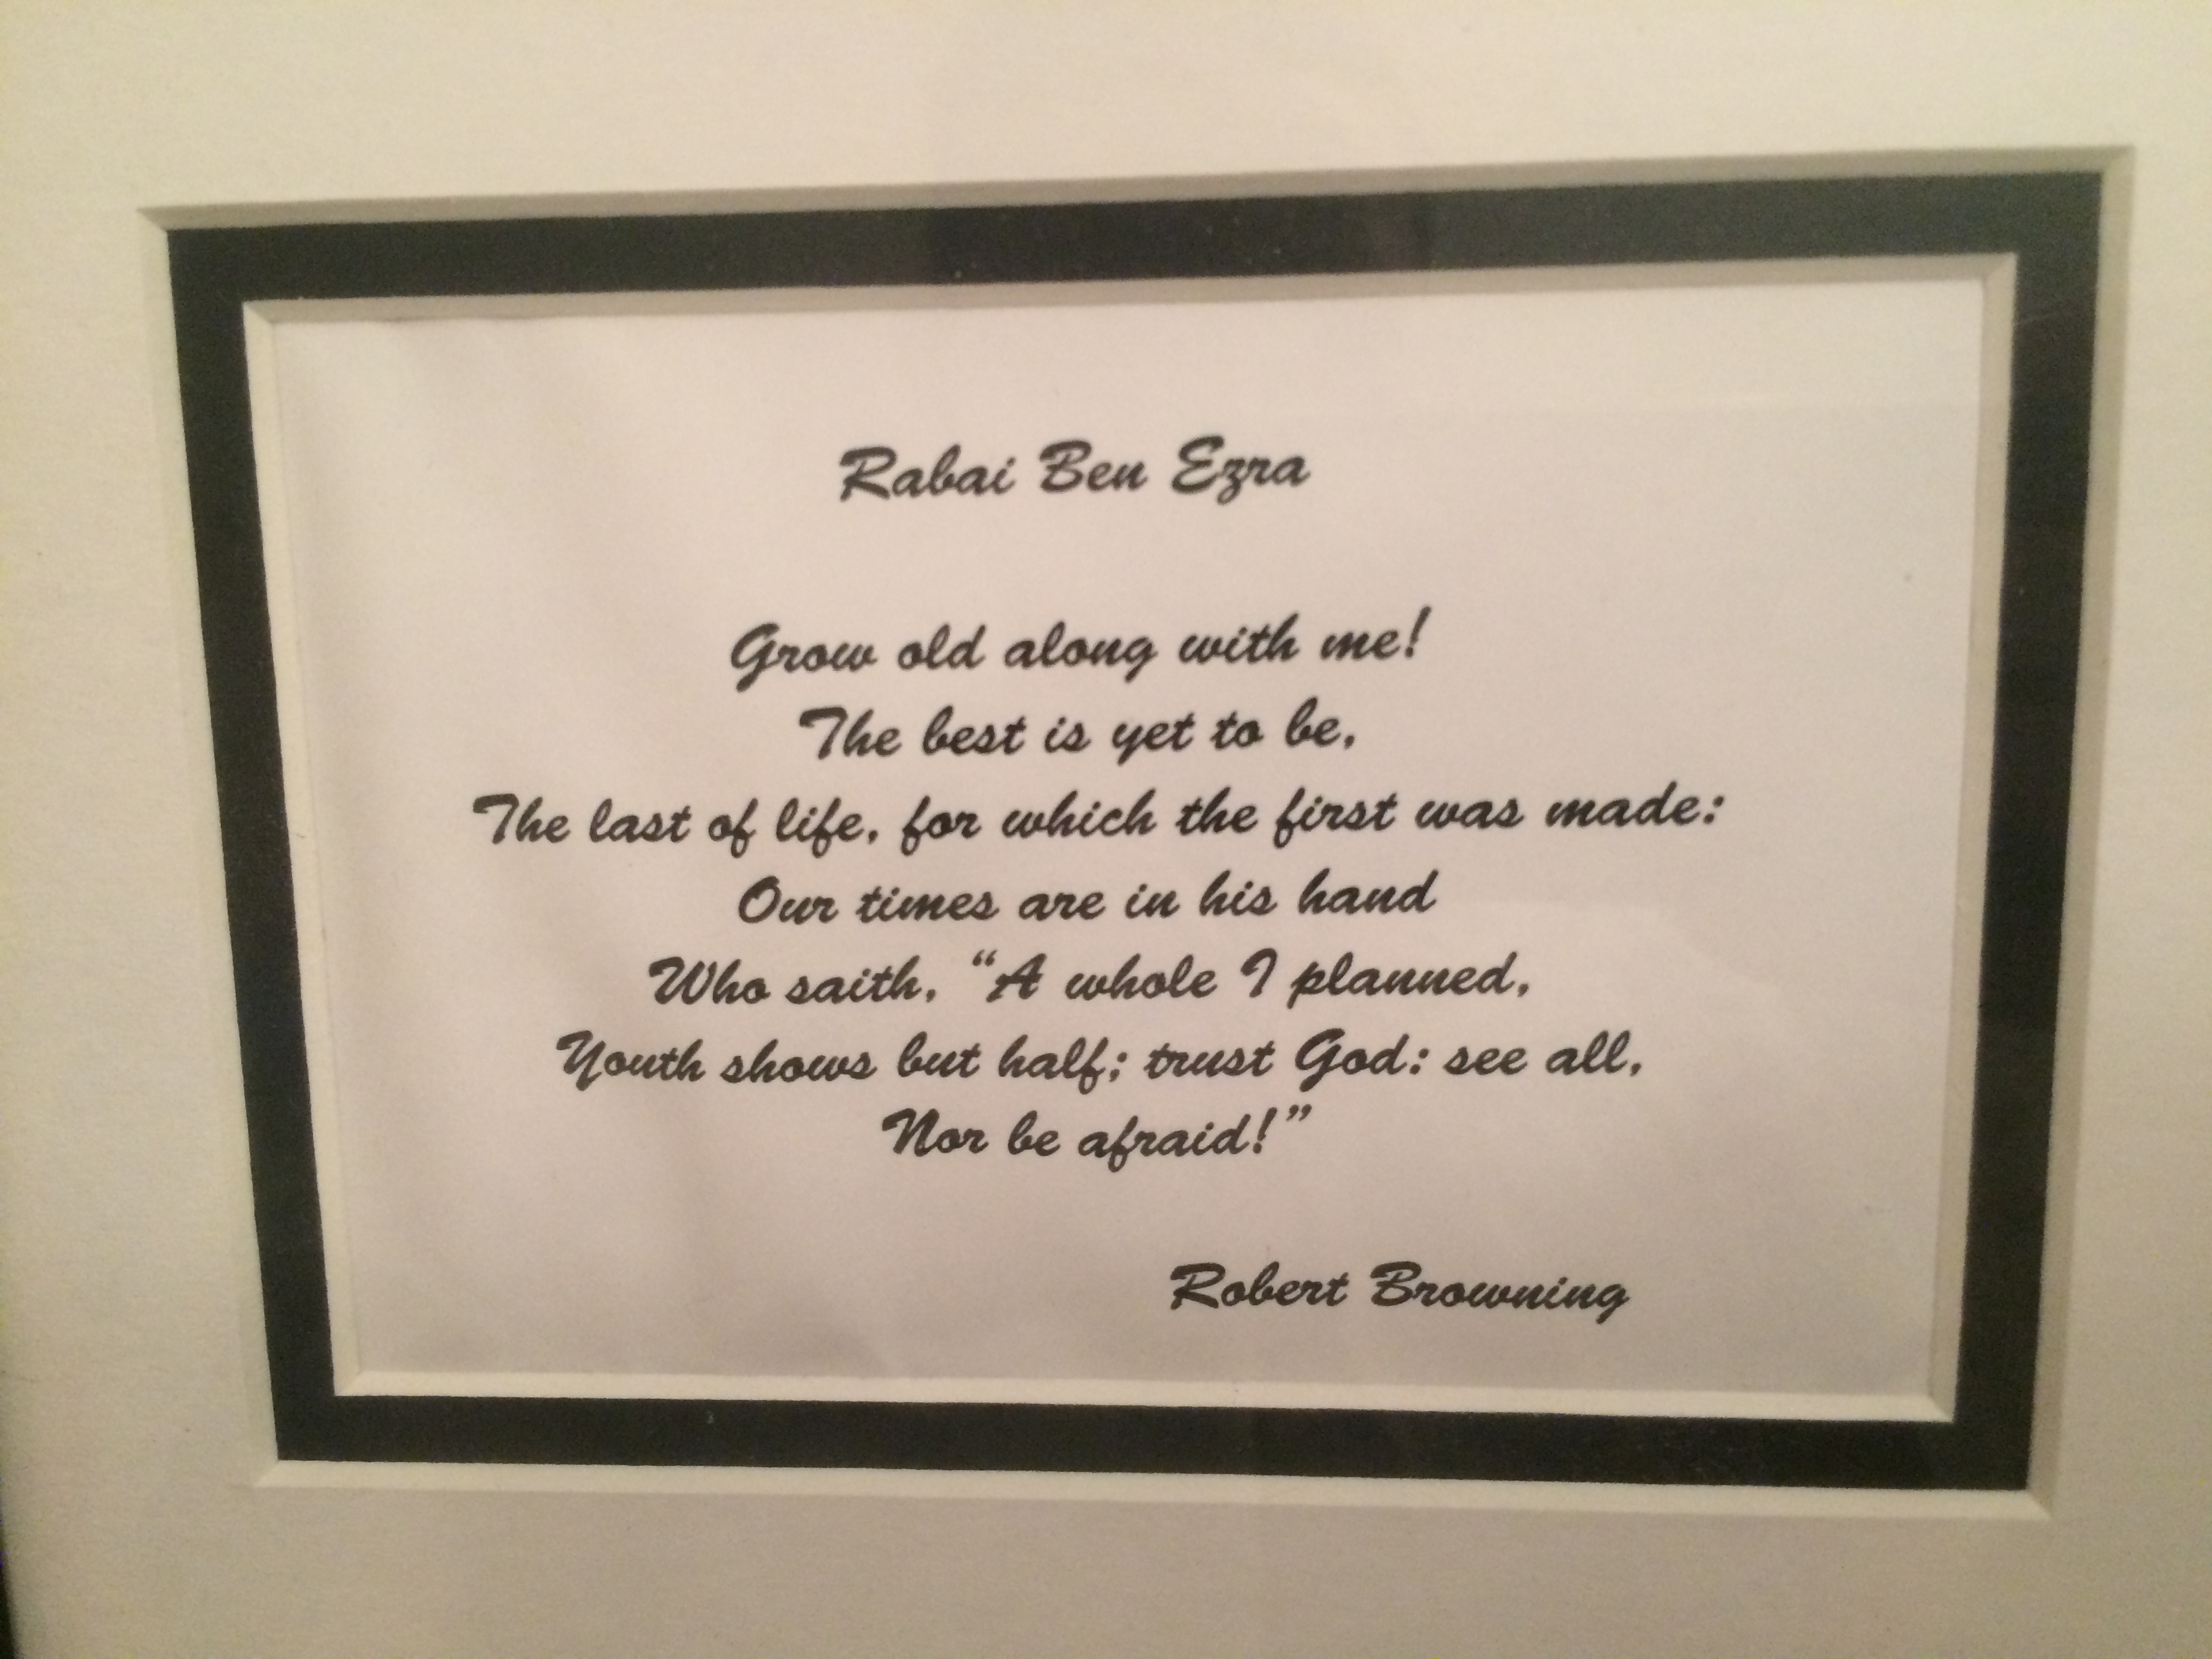 Rabai Ben Ezra
Grow old along with me!
The best is yet to be,
The last of life, for which the first was made:
Our times are in his hand
Who saith, “A whole I planned,
Youth shows but half; trust God: see all,
Nor be afraid!”
Robert Browning